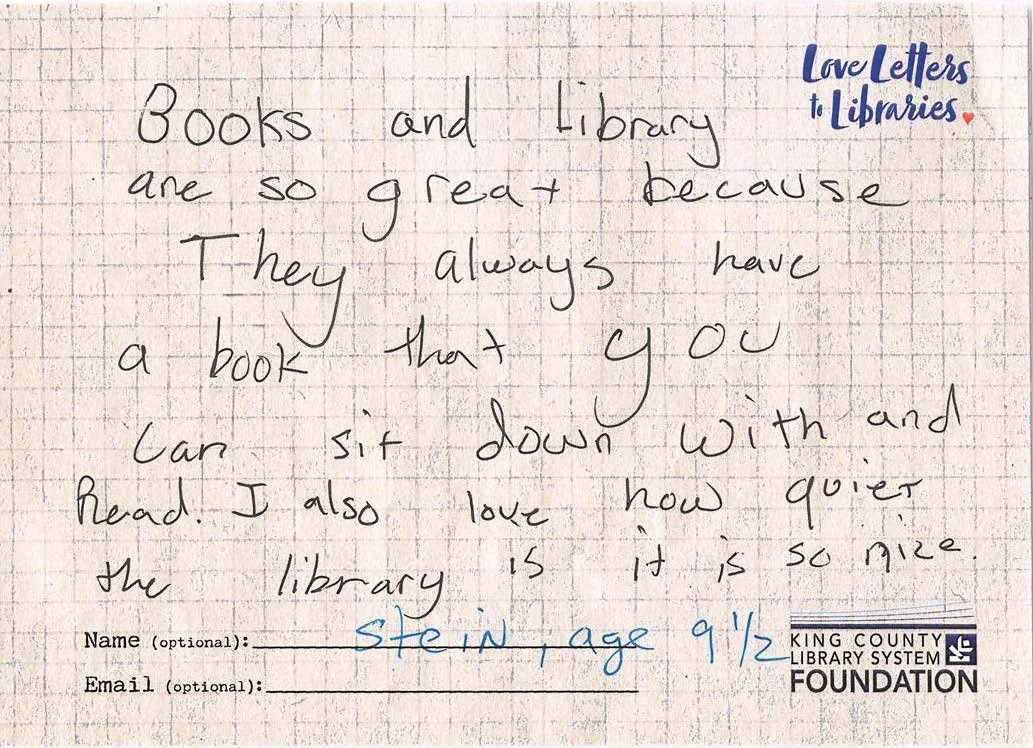 Love Letters
to Libraries.
Books and Library
are so great because
They always have
a book that you
can sit down with and
Read. I also love how quiet
the library is it is so nize.
Name (optional): Stein, age 9 1/2
Email (optional):
KING COUNTY
LIBRARY SYSTEM
FOUNDATION